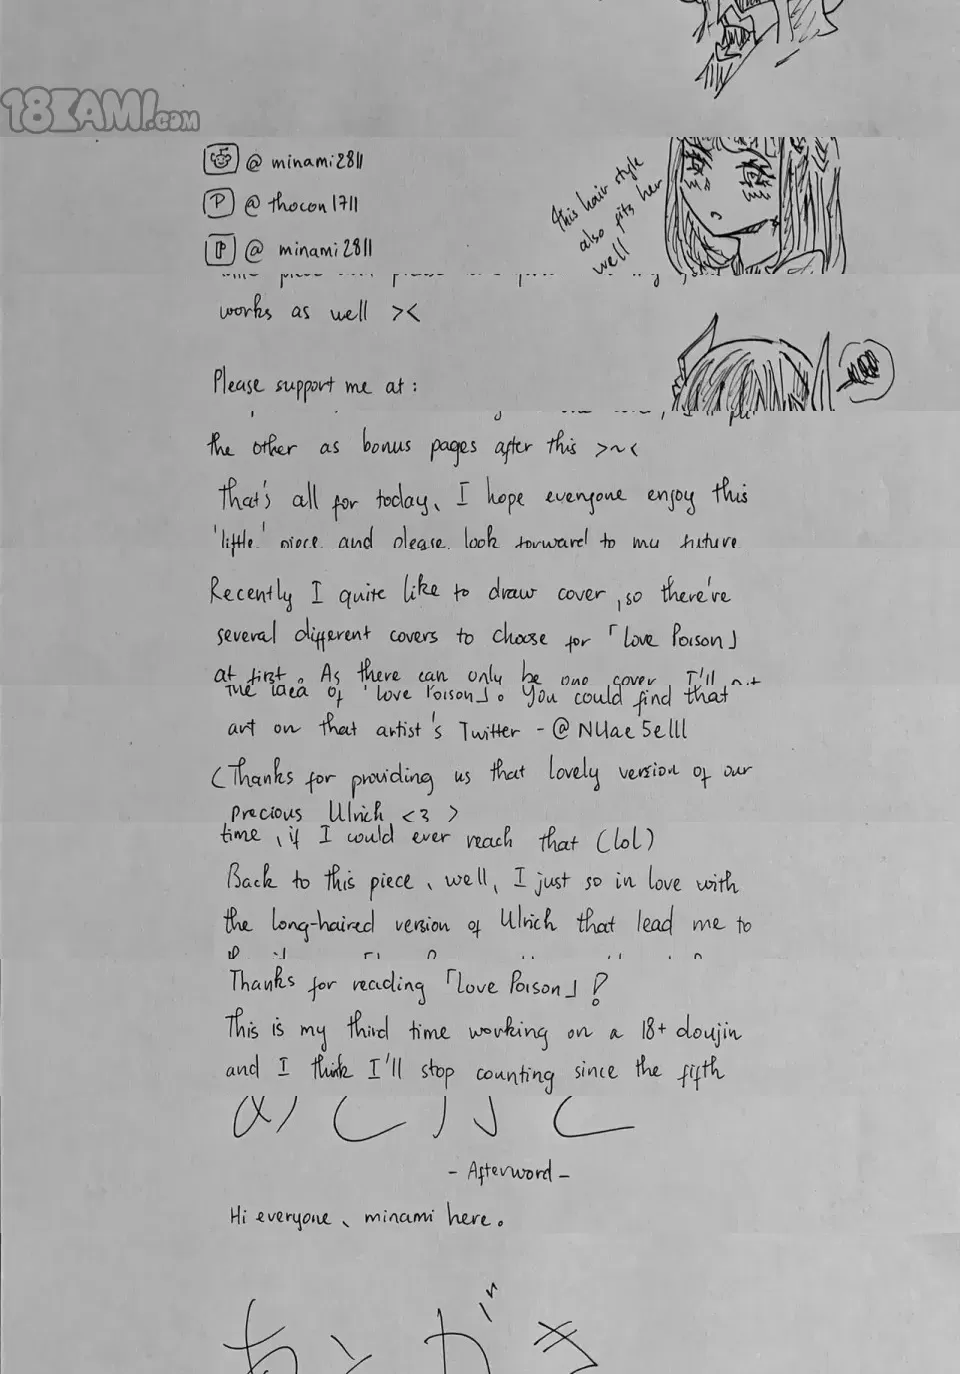 18KAMI.COM
@ minami2811
@ thocon1711
@ minami2811
This hair style
also fits her
well
works as well ><
Please support me at :
the other as bonus pages after this >~<
That's all for today、I hope everyone enjoy this
'little' piece and please look forward to my future
Recently I quite like to draw cover ,so there're
several different covers to choose for「Love Poison」
at first。As there can only be one cover, I'll put
the idea of「Love Poison」。You could find that
art on that artist's Twitter - @NUae5elll
(Thanks for providing us that lovely version of our
precious Ulrich <3 >
time、if I could ever reach that (lol)
Back to this piece、well、I just so in love with
the long-haired version of Ulrich that lead me to
Thanks for reading「Love Poison」!
This is my third time working on a 18+ doujin
and I think I'll stop counting since the fifth
- Afterword -
Hi everyone、minami here。
あとがき